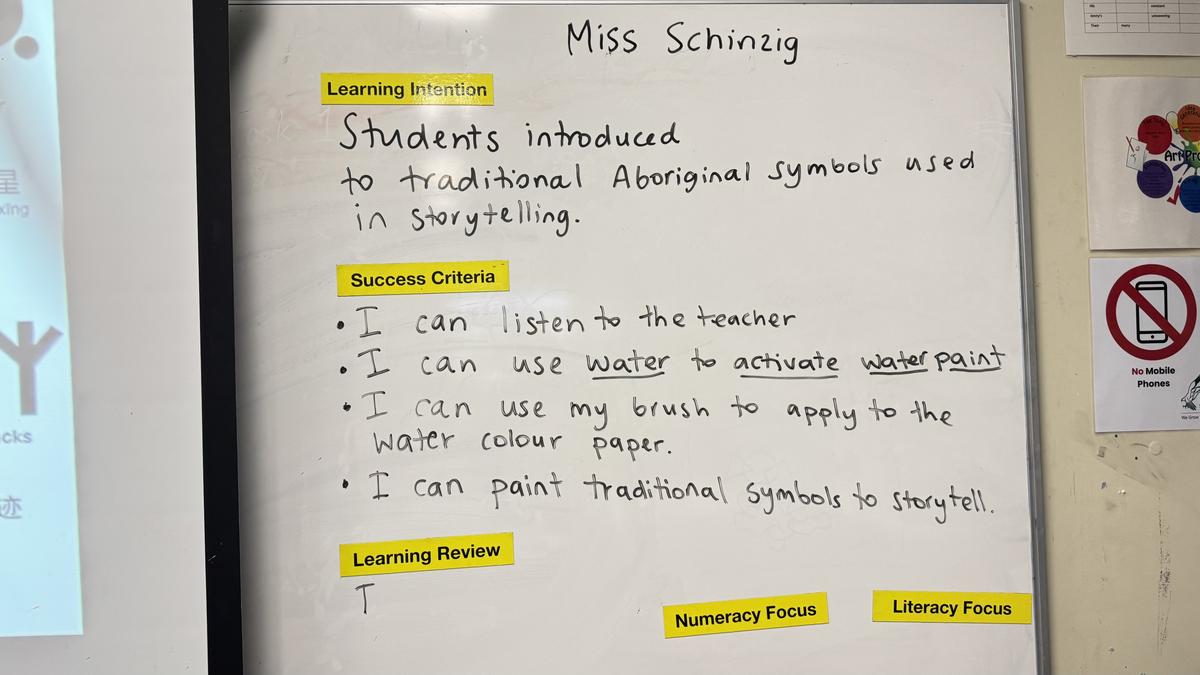 Miss Schinzig
Learning Intention
Students introduced
to traditional Aboriginal symbols used
in storytelling.
Success Criteria
• I can listen to the teacher
• I can use water to activate water paint
• I can use my brush to apply to the
water colour paper.
• I can paint traditional symbols to storytell.
Learning Review
I
Numeracy Focus
Literacy Focus
星
xing
cks
迹
Art Pro
No Mobile
Phones
We Grow